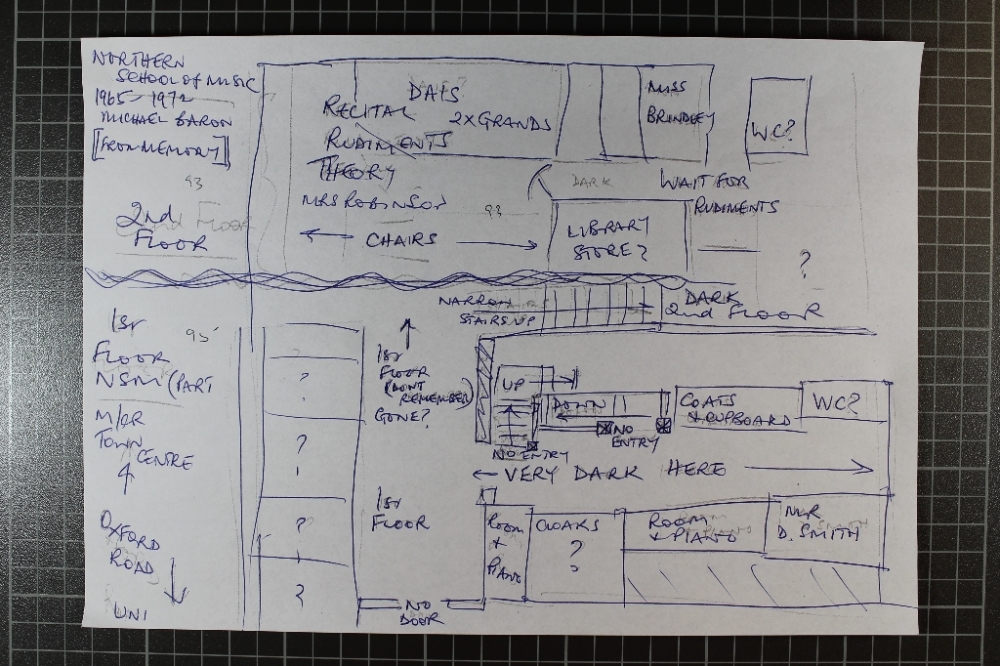 NORTHERN
SCHOOL OF MUSIC
1965-1972
MICHAEL BARON
[FROM MEMORY]
93
2nd
FLOOR
DAIS?
RECITAL 2XGRANDS
RUDIMENTS
THEORY
MRS ROBINSON
93
← CHAIRS →
MISS
BRINDLEY
WC?
DARK
WAIT FOR
RUDIMENTS
LIBRARY
STORE?
?
NARROW
STAIRS UP
DARK
2nd FLOOR
1st
95
FLOOR
NSM (PART
M/CR
TOWN
CENTRE
OXFORD
ROAD
UNI
?
?
?
?
1st
FLOOR
(DON'T
REMEMBER)
GONE?
UP
DOWN
NO
ENTRY
NO ENTRY
COATS
& CUPBOARD
WC?
← VERY DARK HERE →
1st
FLOOR
ROOM
+
PIANO
CLOAKS
?
ROOM
+ PIANO
MR
D. SMITH
NO
DOOR